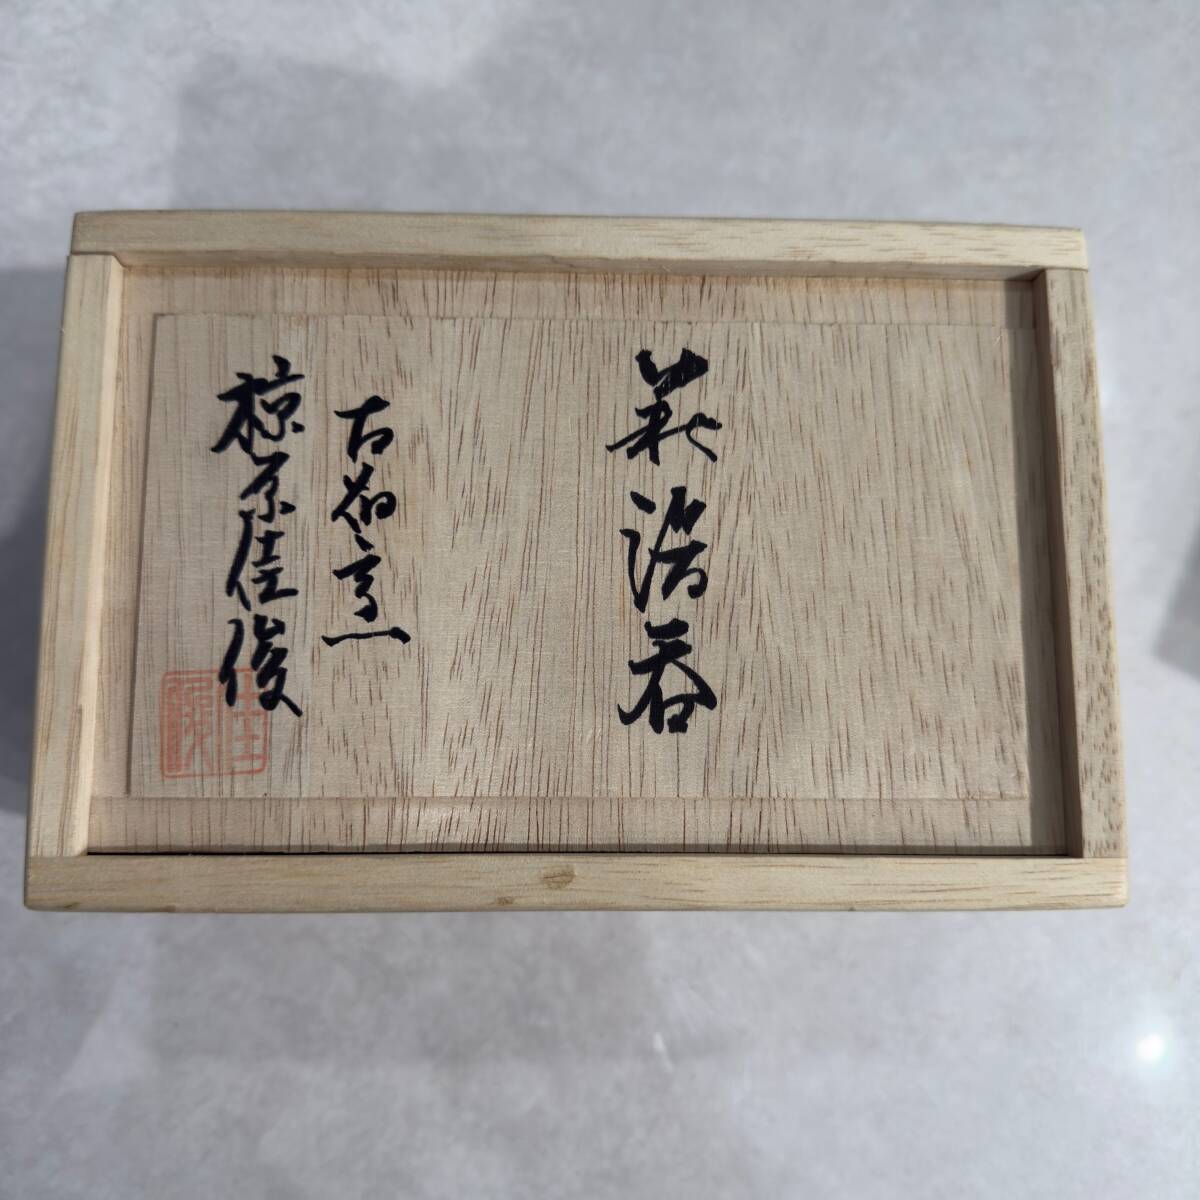 萩湯呑
古萩窯
椋原佳俊
佳俊